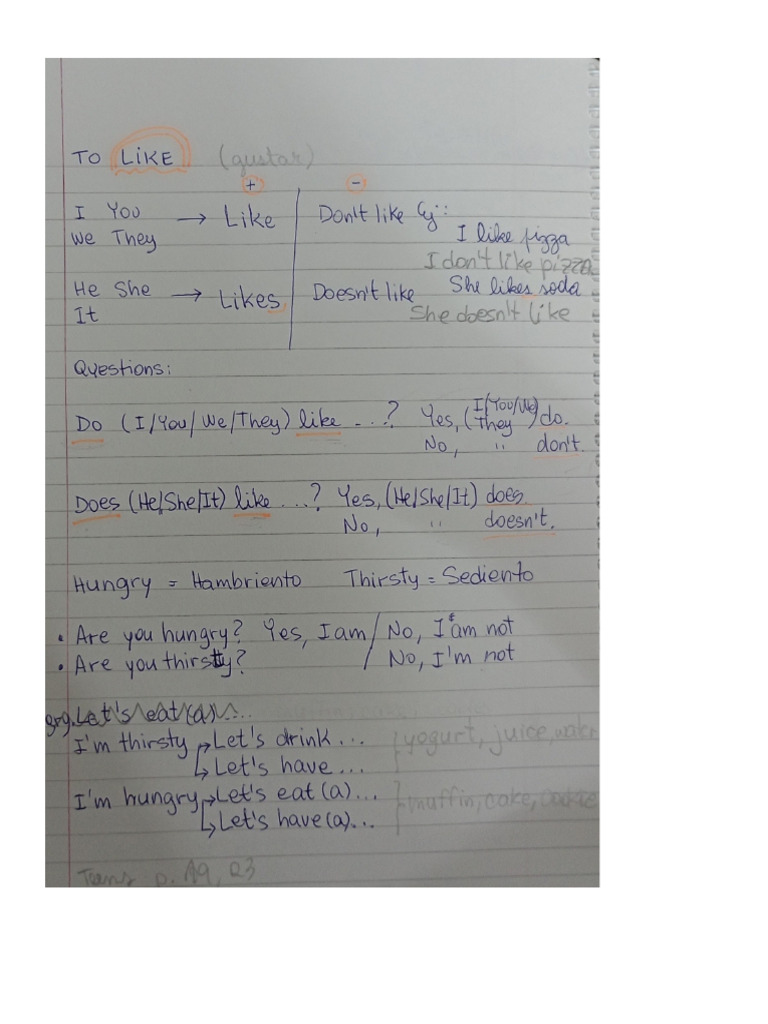 TO LIKE (gustar)
+ -
I You → Like Don't like Ej:
We They I like pizza
I don't like pizza
He She → Likes Doesn't like She likes soda
It She doesn't like
Questions:
Do (I/You/We/They) like ...? Yes, (I/You/We/They) do.
No, " don't.
Does (He/She/It) like ...? Yes, (He/She/It) does
No, " doesn't.
Hungry = Hambriento Thirsty = Sediento
• Are you hungry? Yes, I am / No, I am not
• Are you thirsty? / No, I'm not
Let's eat (a) ...
I'm thirsty → Let's drink ... } yogurt, juice, water
↳ Let's have ...
I'm hungry → Let's eat (a) ... } muffin, cake, cookie
↳ Let's have (a) ...
p. 19, 23